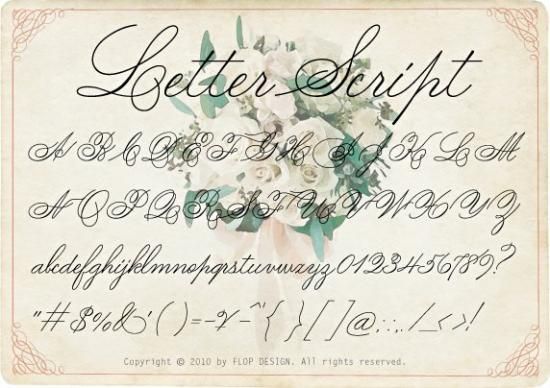 Letter Script
A B C D E F G H I J K L M
N O P Q R S T U V W X Y Z
abcdefghijklmnopqrstuvwxyz0123456789!?
"#$%&'()=-¥-^{}[]@:;.,/_<>!
Copyright © 2010 by FLOP DESIGN. All rights reserved.